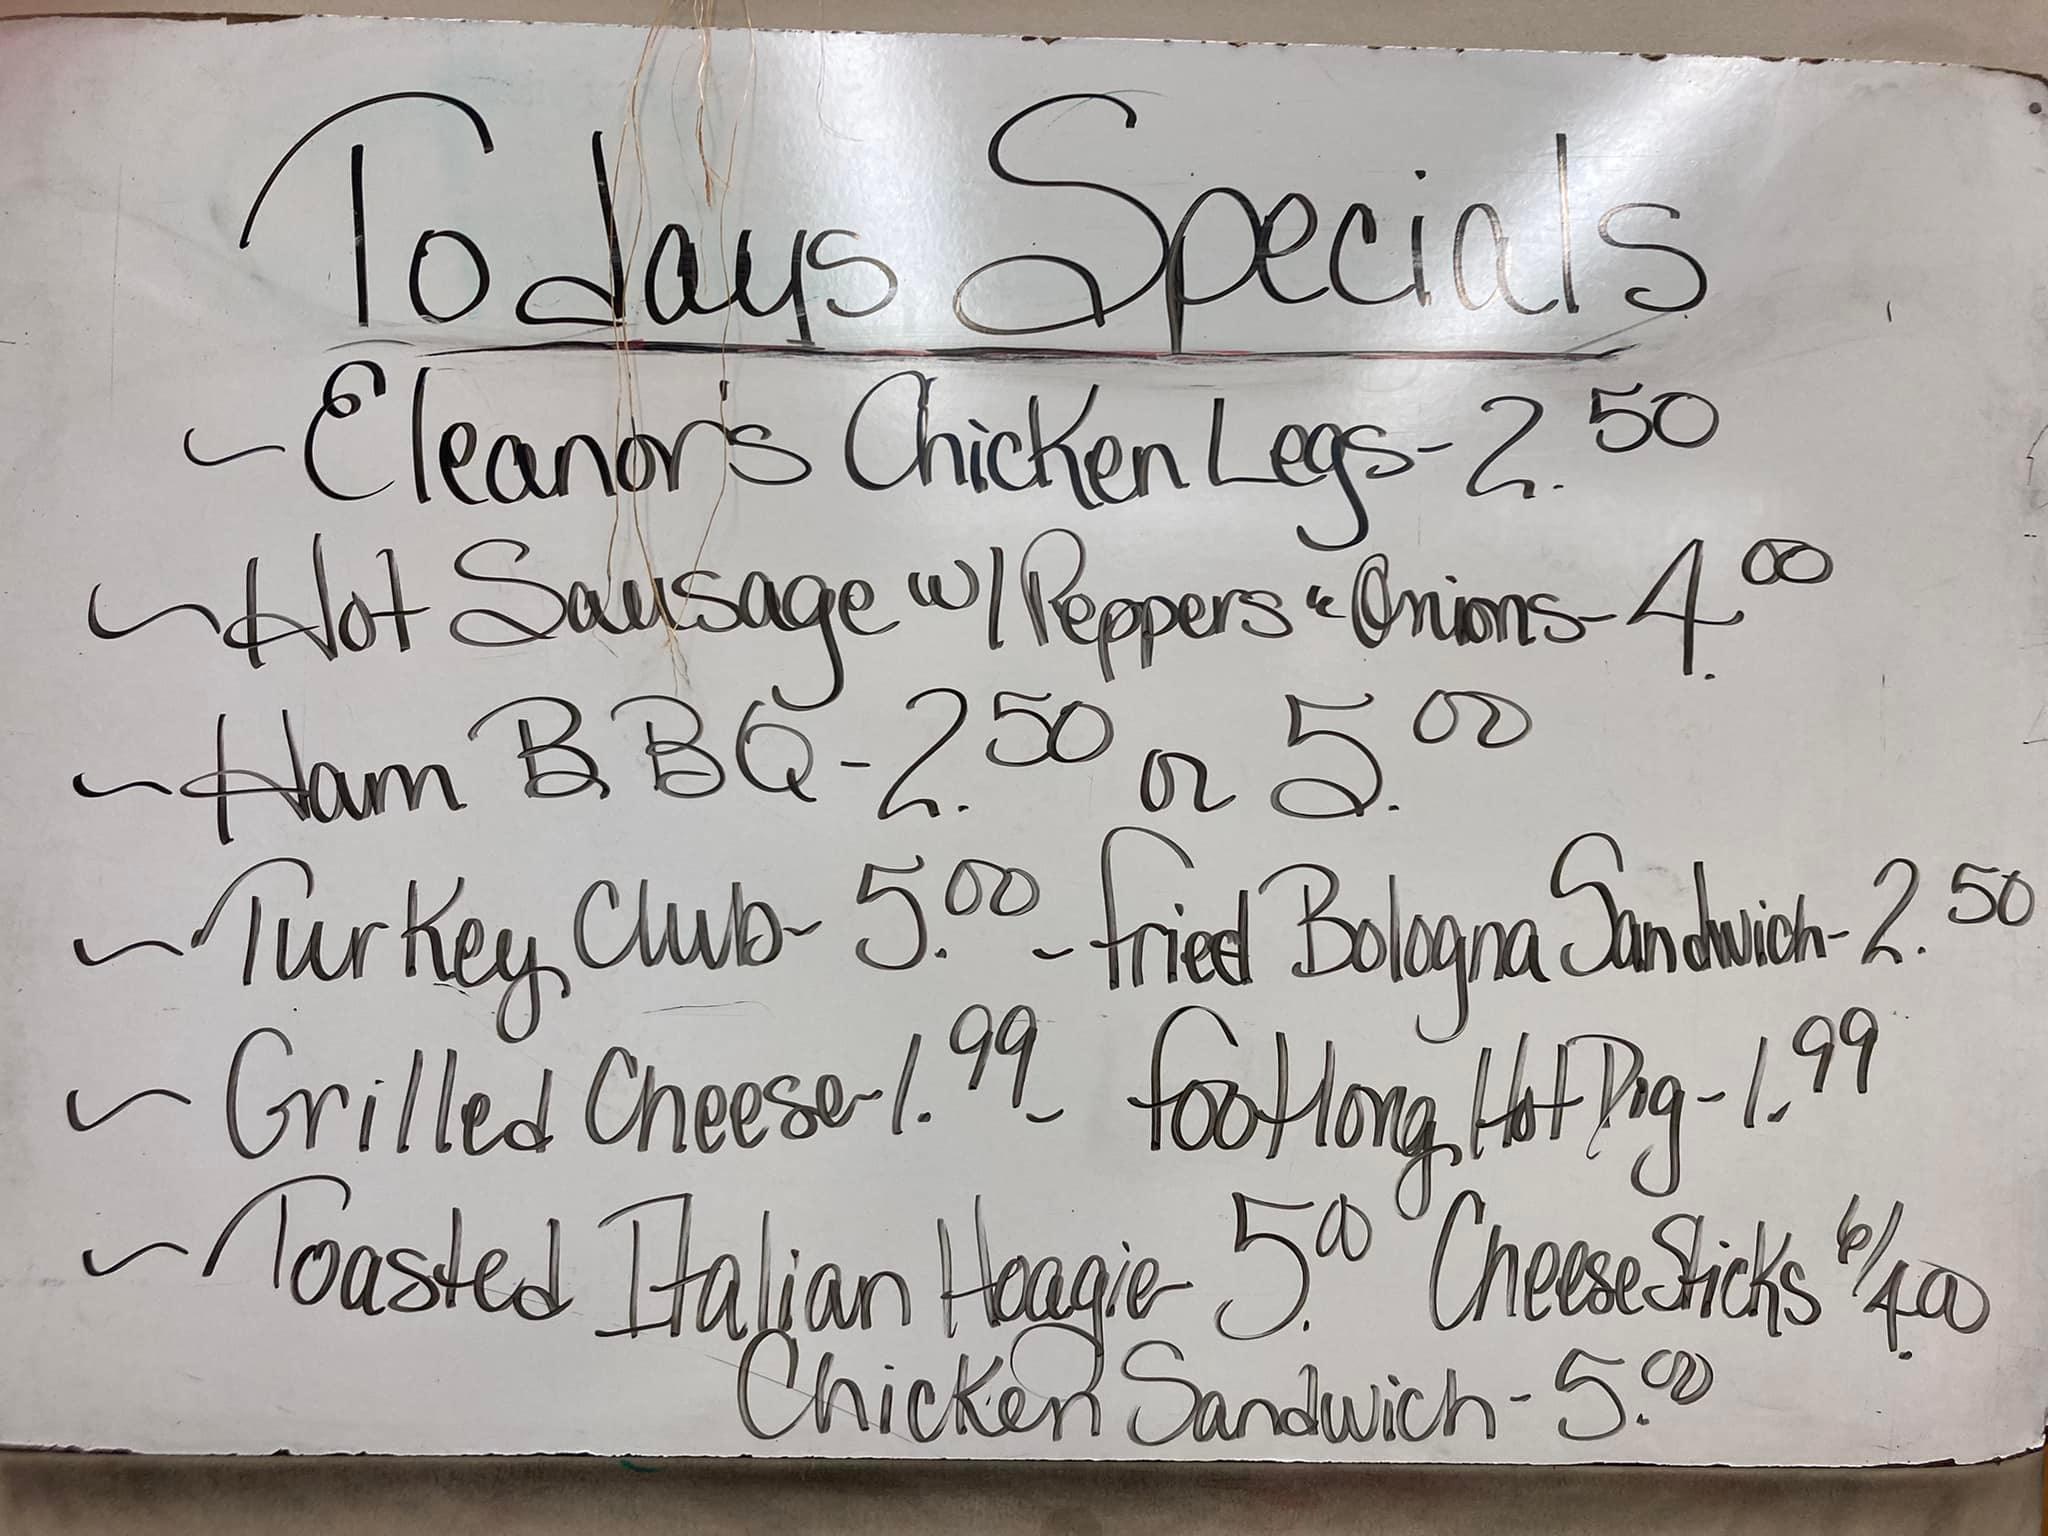 Todays Specials
~ Eleanor's Chicken Legs - 2.50
~ Hot Sausage w/ Peppers & Onions - 4.00
~ Ham BBQ - 2.50 or 5.00
~ Turkey Club - 5.00 - Fried Bologna Sandwich - 2.50
~ Grilled Cheese - 1.99 - Footlong Hot Dog - 1.99
~ Toasted Italian Hoagie - 5.00 Cheese Sticks 6/4.00
Chicken Sandwich - 5.00